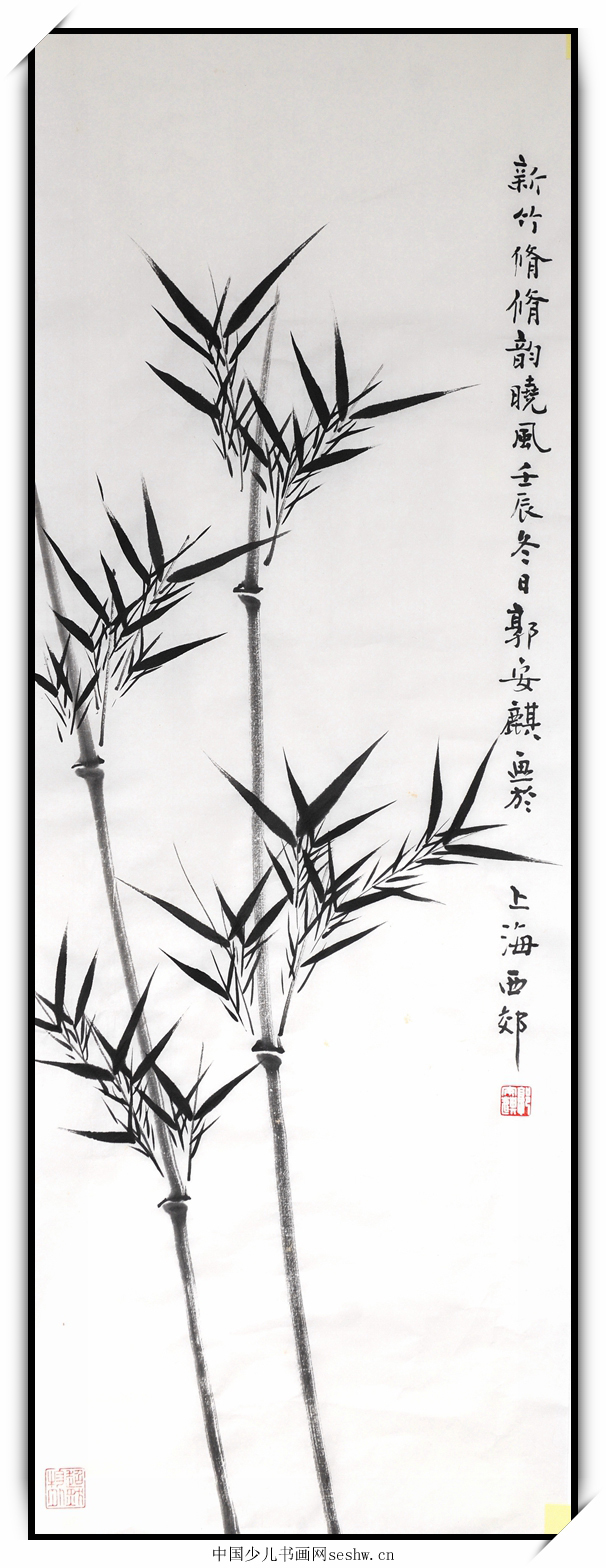 新竹脩脩韵曉風壬辰冬日郭安麒画於
上海西郊
中国少儿书画网seshw.cn